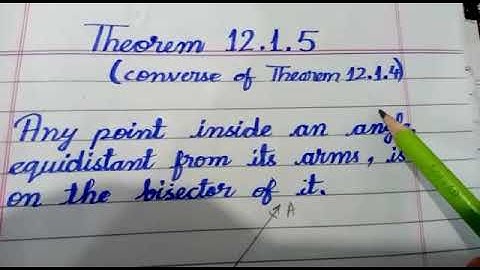 Theorem 12.1.5
(converse of Theorem 12.1.4)
Any point inside an angle,
equidistant from its arms, is
on the bisector of it.
A